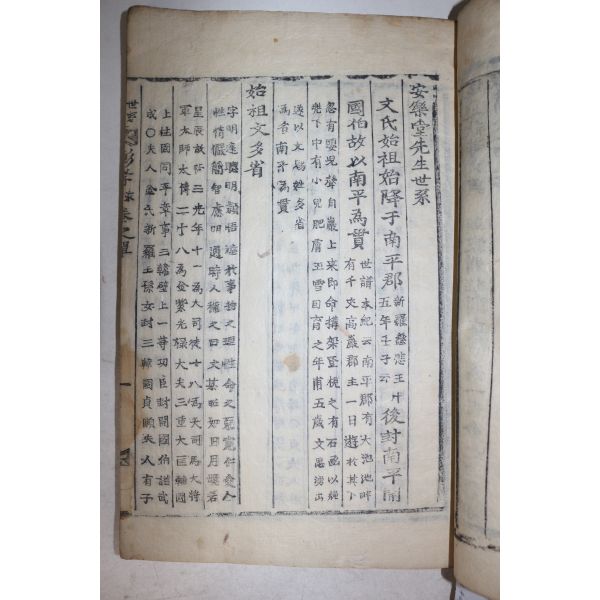 安樂堂先生世系
文氏始祖始降于南平郡 新羅慈悲王 五年壬子云 後封南平開
國伯故以南平爲貫 世譜本紀云南平郡有大池池畔
有千丈高巖郡主一日遊於其下
忽有嬰兒聲自巖上來即命搆架登梯之有石函以
下中有小兒肥膚玉雪因育之年甫五歲文思
遂以文爲姓多省
爲名南平爲貫
始祖文多省
字明遠聰明穎悟達於事物之理性命之 寬仁愛人
性情 簡智應明通時人稱之曰文 昭如日月曖若
星辰故 三光年十一爲大司徒十八爲大司馬大將
軍太師太傅二十八爲金紫光祿大夫三重大匡輔國
上柱國同平章事三韓壁上一等功臣封開國伯諡武
成 夫人金氏新羅王孫女封三韓國貞順夫人有子
世系
一